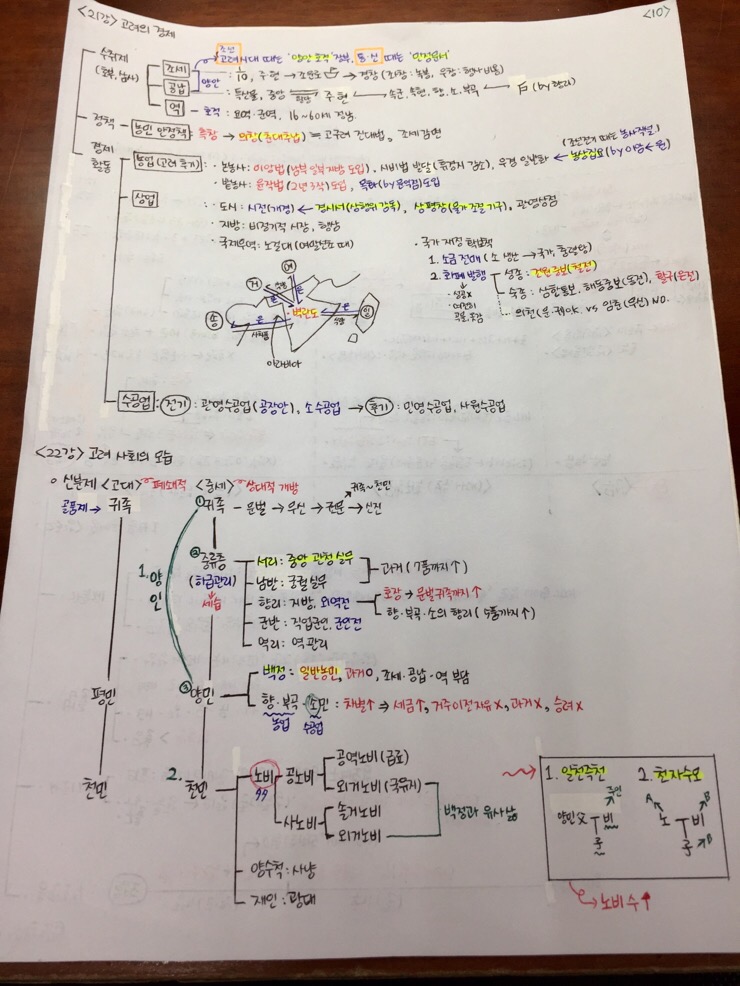 <21강> 고려의 경제
<10>
수취제
(호부, 삼사)
조선
고려시대 때는 '양안 호적' 정부, 통·신 때는 '민정문서'
조세
공납
양안
: 1/10, 주현 → 조운로 → 경창 (좌창: 녹봉, 우창: 행사비용)
: 특산물, 중앙 주현 속군, 속현, 향, 소, 부곡 (by 향리)
역 - 호적 : 요역·군역, 16~60세 정남
정책 - 농민 안정책 : 흑창 → 의창(춘대추납) ≒ 고구려 진대법, 조세감면
경제
활동
(조선전기 때는 농사직설)
농업(고려 후기) · 논농사: 이앙법(남부 일부지방 도입), 시비법 발달(휴경지 감소), 우경 일반화 ← 농상집요(by 이암 ← 원)
· 밭농사: 윤작법(2년 3작) 도입, 목화(by 문익점) 도입
상업 · 도시: 시전(개경) ← 경시서(상행위 감독), 상평창(물가 조절 기구), 관영상점
· 지방: 비정기적 시장, 행상
· 국제무역: 노걸대
· 국가 재정 확보책
1. 소금 전매 (소 생산 → 국가, 충렬왕)
2. 화폐 발행 성종: 건원중보(철전)
숙종: 삼한통보, 해동통보(동전), 활구(은전)
의천 vs 임춘 NO.
거
여
은
송
벽란도
일
수은
아라비아
수공업 : 전기 : 관영수공업(공장안), 소수공업 → 후기 : 민영수공업, 사원수공업
<22강> 고려 사회의 모습
○ 신분제 <고대> 폐쇄적 <중세> 상대적 개방
골품제 → 귀족
① 귀족 - 문벌 → 무신 → 권문 → 신진
귀족~천민
1. 양인
② 중류층
(하급관리)
세습
서리: 중앙 관청 실무
남반: 궁궐 실무
과거 (7품까지↑)
향리: 지방, 외역전
호장 → 문벌귀족까지↑
향·부곡·소의 향리 (5품까지↑)
군반: 직업군인, 군인전
역리: 역 관리
평민
③ 양민
백정: 일반농민, 과거○, 조세·공납·역 부담
향·부곡·소민 : 차별↑ → 세금↑, 거주이전 자유×, 과거×, 승려×
농업 수공업
천민
2. 천민
노비
공노비
공역노비(급료)
외거노비(국유지)
사노비
솔거노비
외거노비
백정과 유사
양수척: 사냥
재인: 광대
1. 일천즉천
주인
양민父 비
子
2. 천자수모
A 노 비 B
子 B
→ 노비 수↑